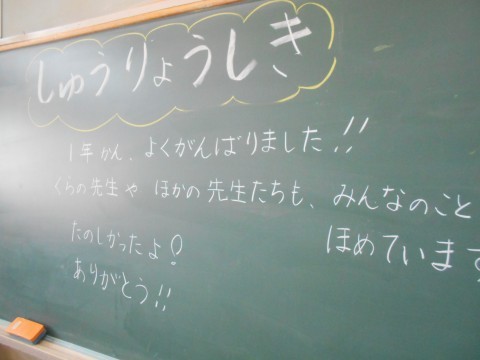 しゅうりょうしき
1年かん、よくがんばりました!!
くらの先生や ほかの先生たちも、みんなのこと
ほめています
たのしかったよ!
ありがとう!!